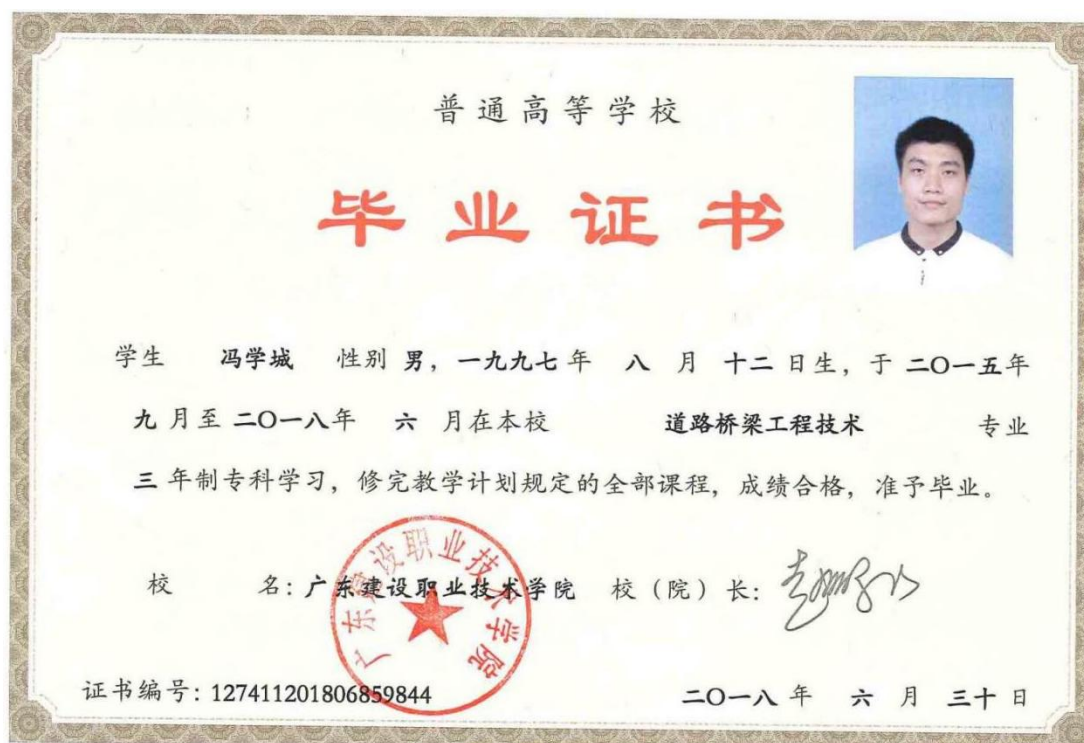 普通高等学校
毕业证书
学生 冯学城 性别 男，一九九七年 八 月 十二 日生，于 二〇一五年
九 月至 二〇一八年 六 月在本校 道路桥梁工程技术 专业
三 年制专科学习，修完教学计划规定的全部课程，成绩合格，准予毕业。
广东建设职业技术学院
校 名：广东建设职业技术学院 校（院）长：
证书编号：127411201806859844
二〇一八 年 六 月 三十 日